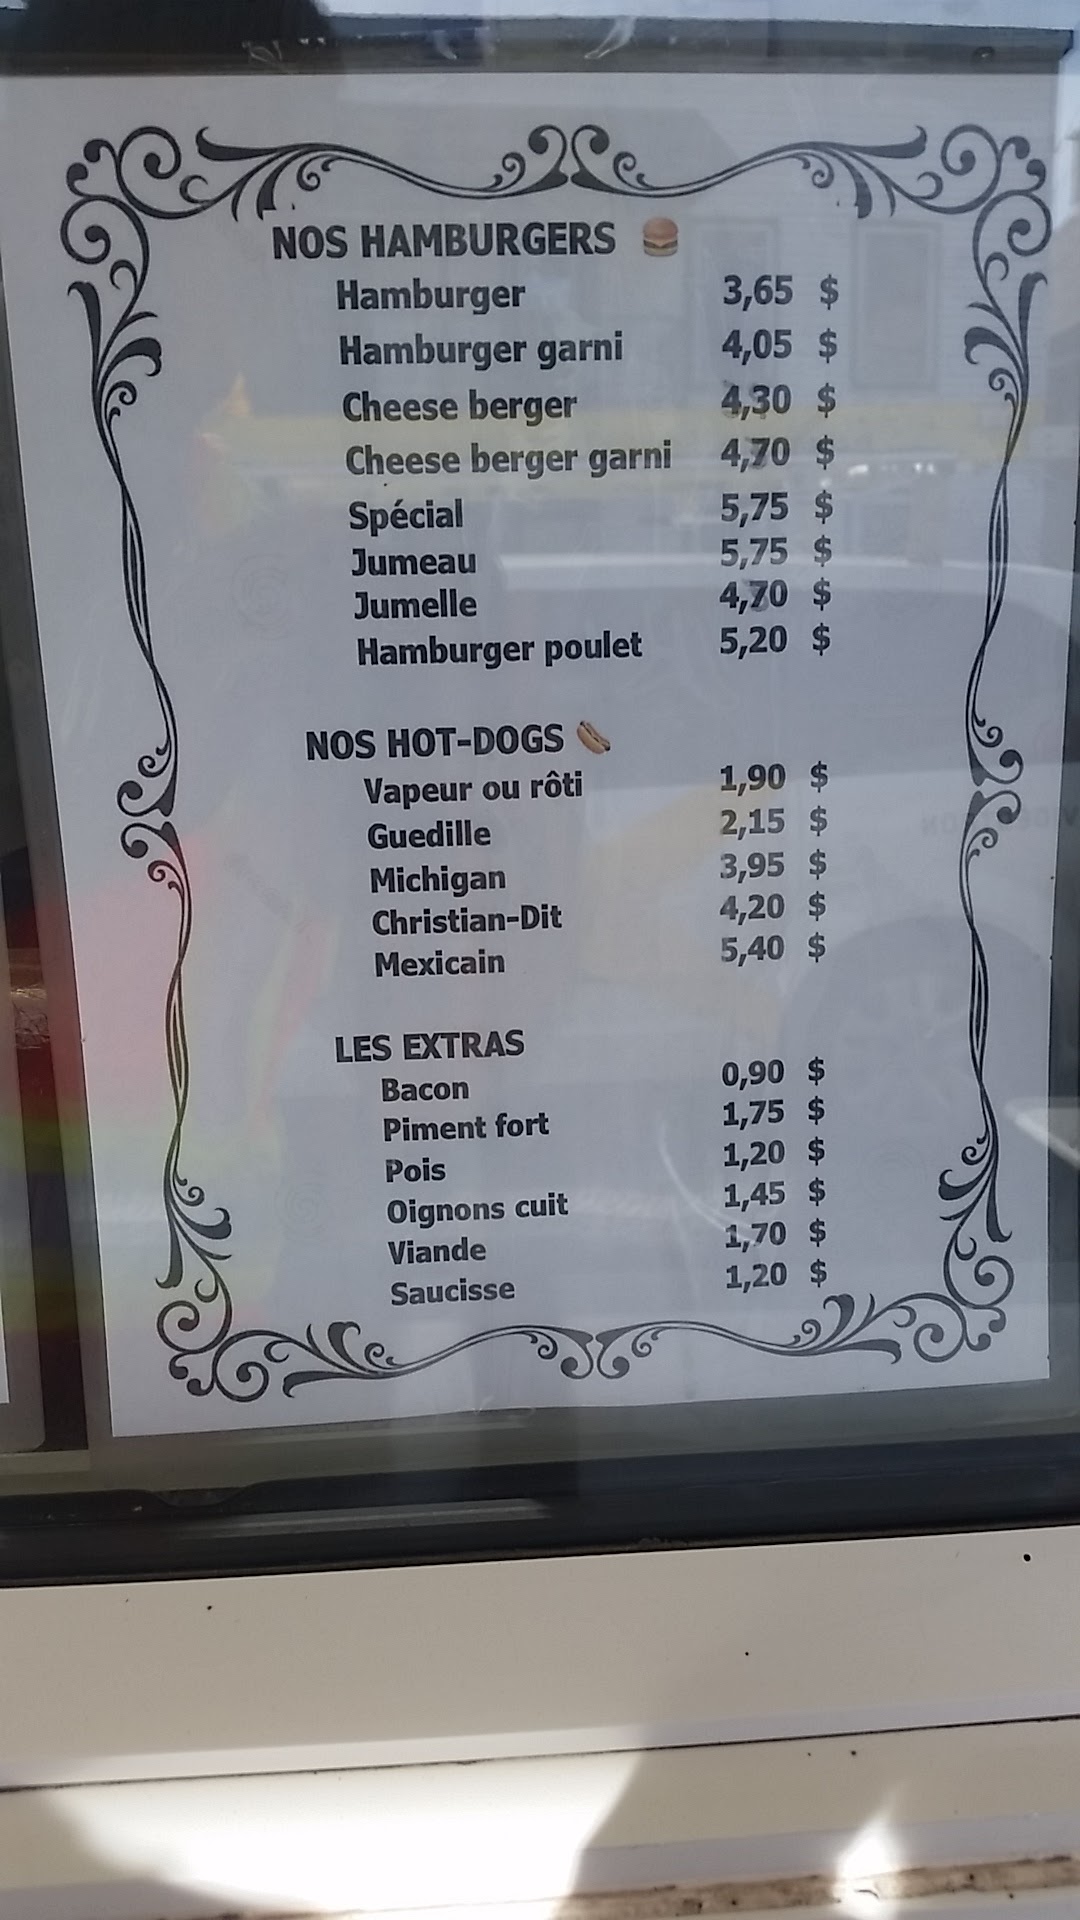 NOS HAMBURGERS
Hamburger 3,65 $
Hamburger garni 4,05 $
Cheese berger 4,30 $
Cheese berger garni 4,70 $
Spécial 5,75 $
Jumeau 5,75 $
Jumelle 4,70 $
Hamburger poulet 5,20 $
NOS HOT-DOGS
Vapeur ou rôti 1,90 $
Guedille 2,15 $
Michigan 3,95 $
Christian-Dit 4,20 $
Mexicain 5,40 $
LES EXTRAS
Bacon 0,90 $
Piment fort 1,75 $
Pois 1,20 $
Oignons cuit 1,45 $
Viande 1,70 $
Saucisse 1,20 $